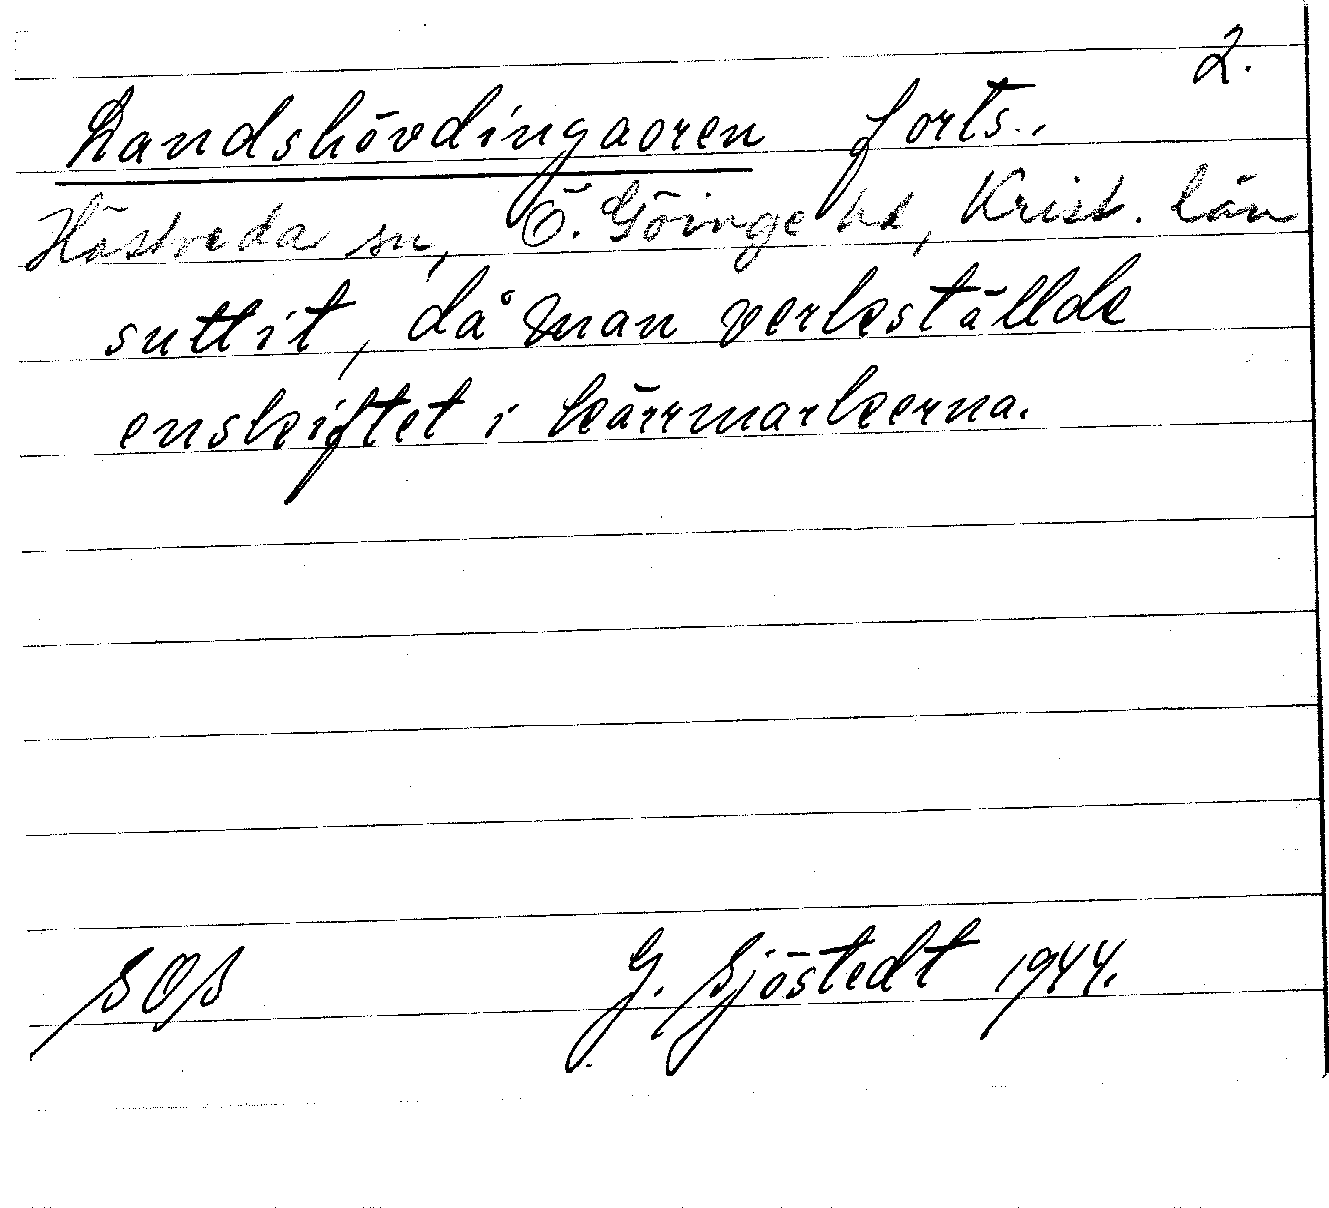 2.
Landshövdingaoren forts..
Hästveda sn, Ö. Göinge hd, Krist. län
suttit, då man verkställde
enskiftet i kärrmarkerna.
SOS G. Sjöstedt 1944.